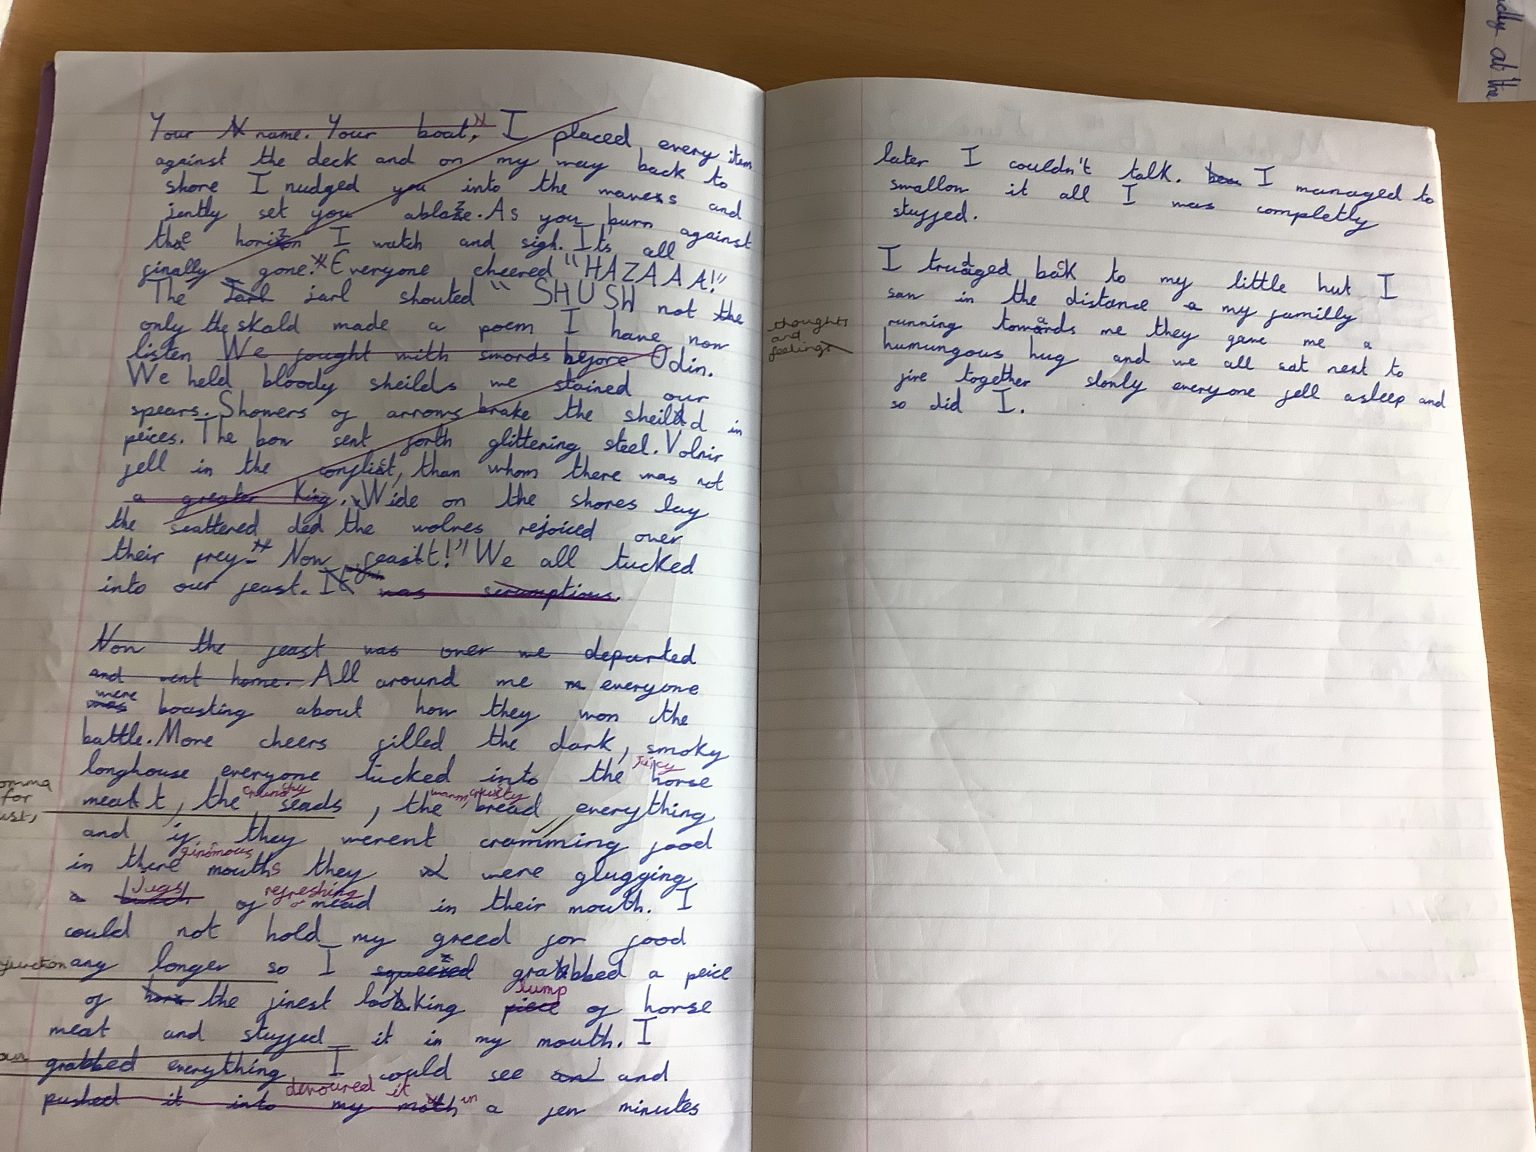 Your name. Your boat," I placed every item
against the deck and on my way back to
shore I nudged you into the waves and
jently set you ablaze. As you burn against
the horizon I watch and sigh. Its all
finally gone." Everyone cheered "HAZAAA!"
The Jarl jarl shouted "SHUSH not the
only the skald made a poem I have now
listen We fought with swords before Odin.
We held bloody sheilds we stained our
spears. Showers of arrows brake the sheild in
peices. The bow sent forth glittering steel. Volnir
fell in the conflict, than whom there was not
a greater King. Wide on the shores lay
the scattered ded the wolves rejoiced over
their prey." Now feast!" We all tucked
into our feast. It was scrumptious.
Now the feast was over we departed
and went home. All around me everyone
were
was boasting about how they won the
battle. More cheers filled the dark, smoky
longhouse everyone tucked into the juicy horse
meat, the crunchy seads, the warm, crusty bread, everything
and if they werent cramming food
in there ginomous mouths they were glugging
a jugs of refreshing mead in their mouth. I
could not hold my greed for food
any longer so I squeezed grabbed a peice
of the finest looking piece lump of horse
meat and stuffed it in my mouth. I
grabbed everything I could see and and
pushed it into my moth devoured it in a few minutes
omma
for
thoughts
and
feelings
later I couldn't talk. I managed to
swallow it all I was completly
stuffed.
I trudged back to my little hut I
saw in the distance a my familly
running towards me they gave me a
humungous hug and we all sat next to
fire together slowly everyone fell asleep and
so did I.
at the